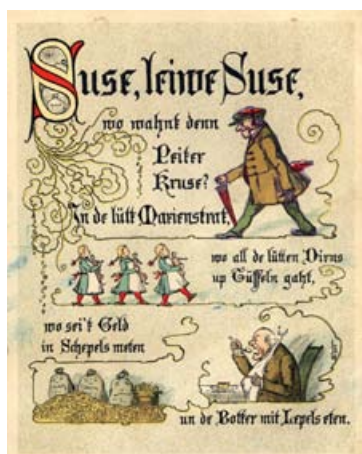 Suse, leiwe Suse,
wo wahnt denn
Peiter
Kruse?
In de lütt Marienstrat,
wo all de lütten Dirns
up Tüffeln gaht,
wo sei't Geld
in Schepels meten
un de Botter mit Lepels eten.